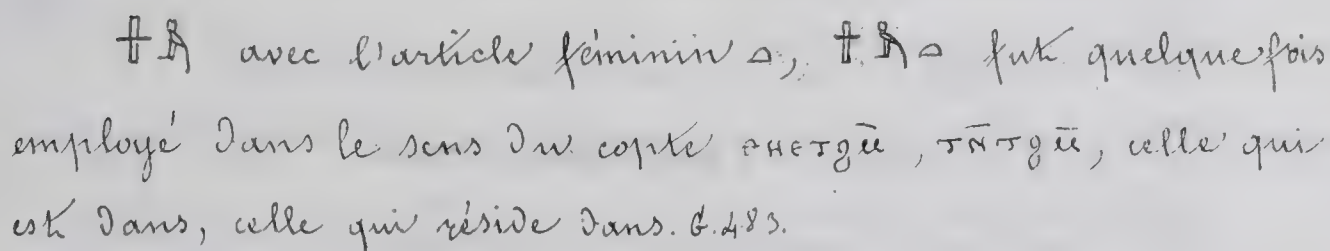 𓏶𓅓 avec l'article féminin 𓏏, 𓏶𓅓𓏏 fut quelquefois
employé dans le sens du copte ⲑⲏⲉⲧϩⲙ̄, ⲧⲛ̄ⲧϩⲙ̄, celle qui
est dans, celle qui réside dans. G. 483.